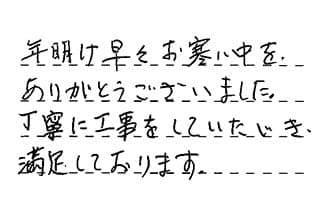 年明け早々お寒い中を、
ありがとうございました。
丁寧に工事をしていただき、
満足しております。